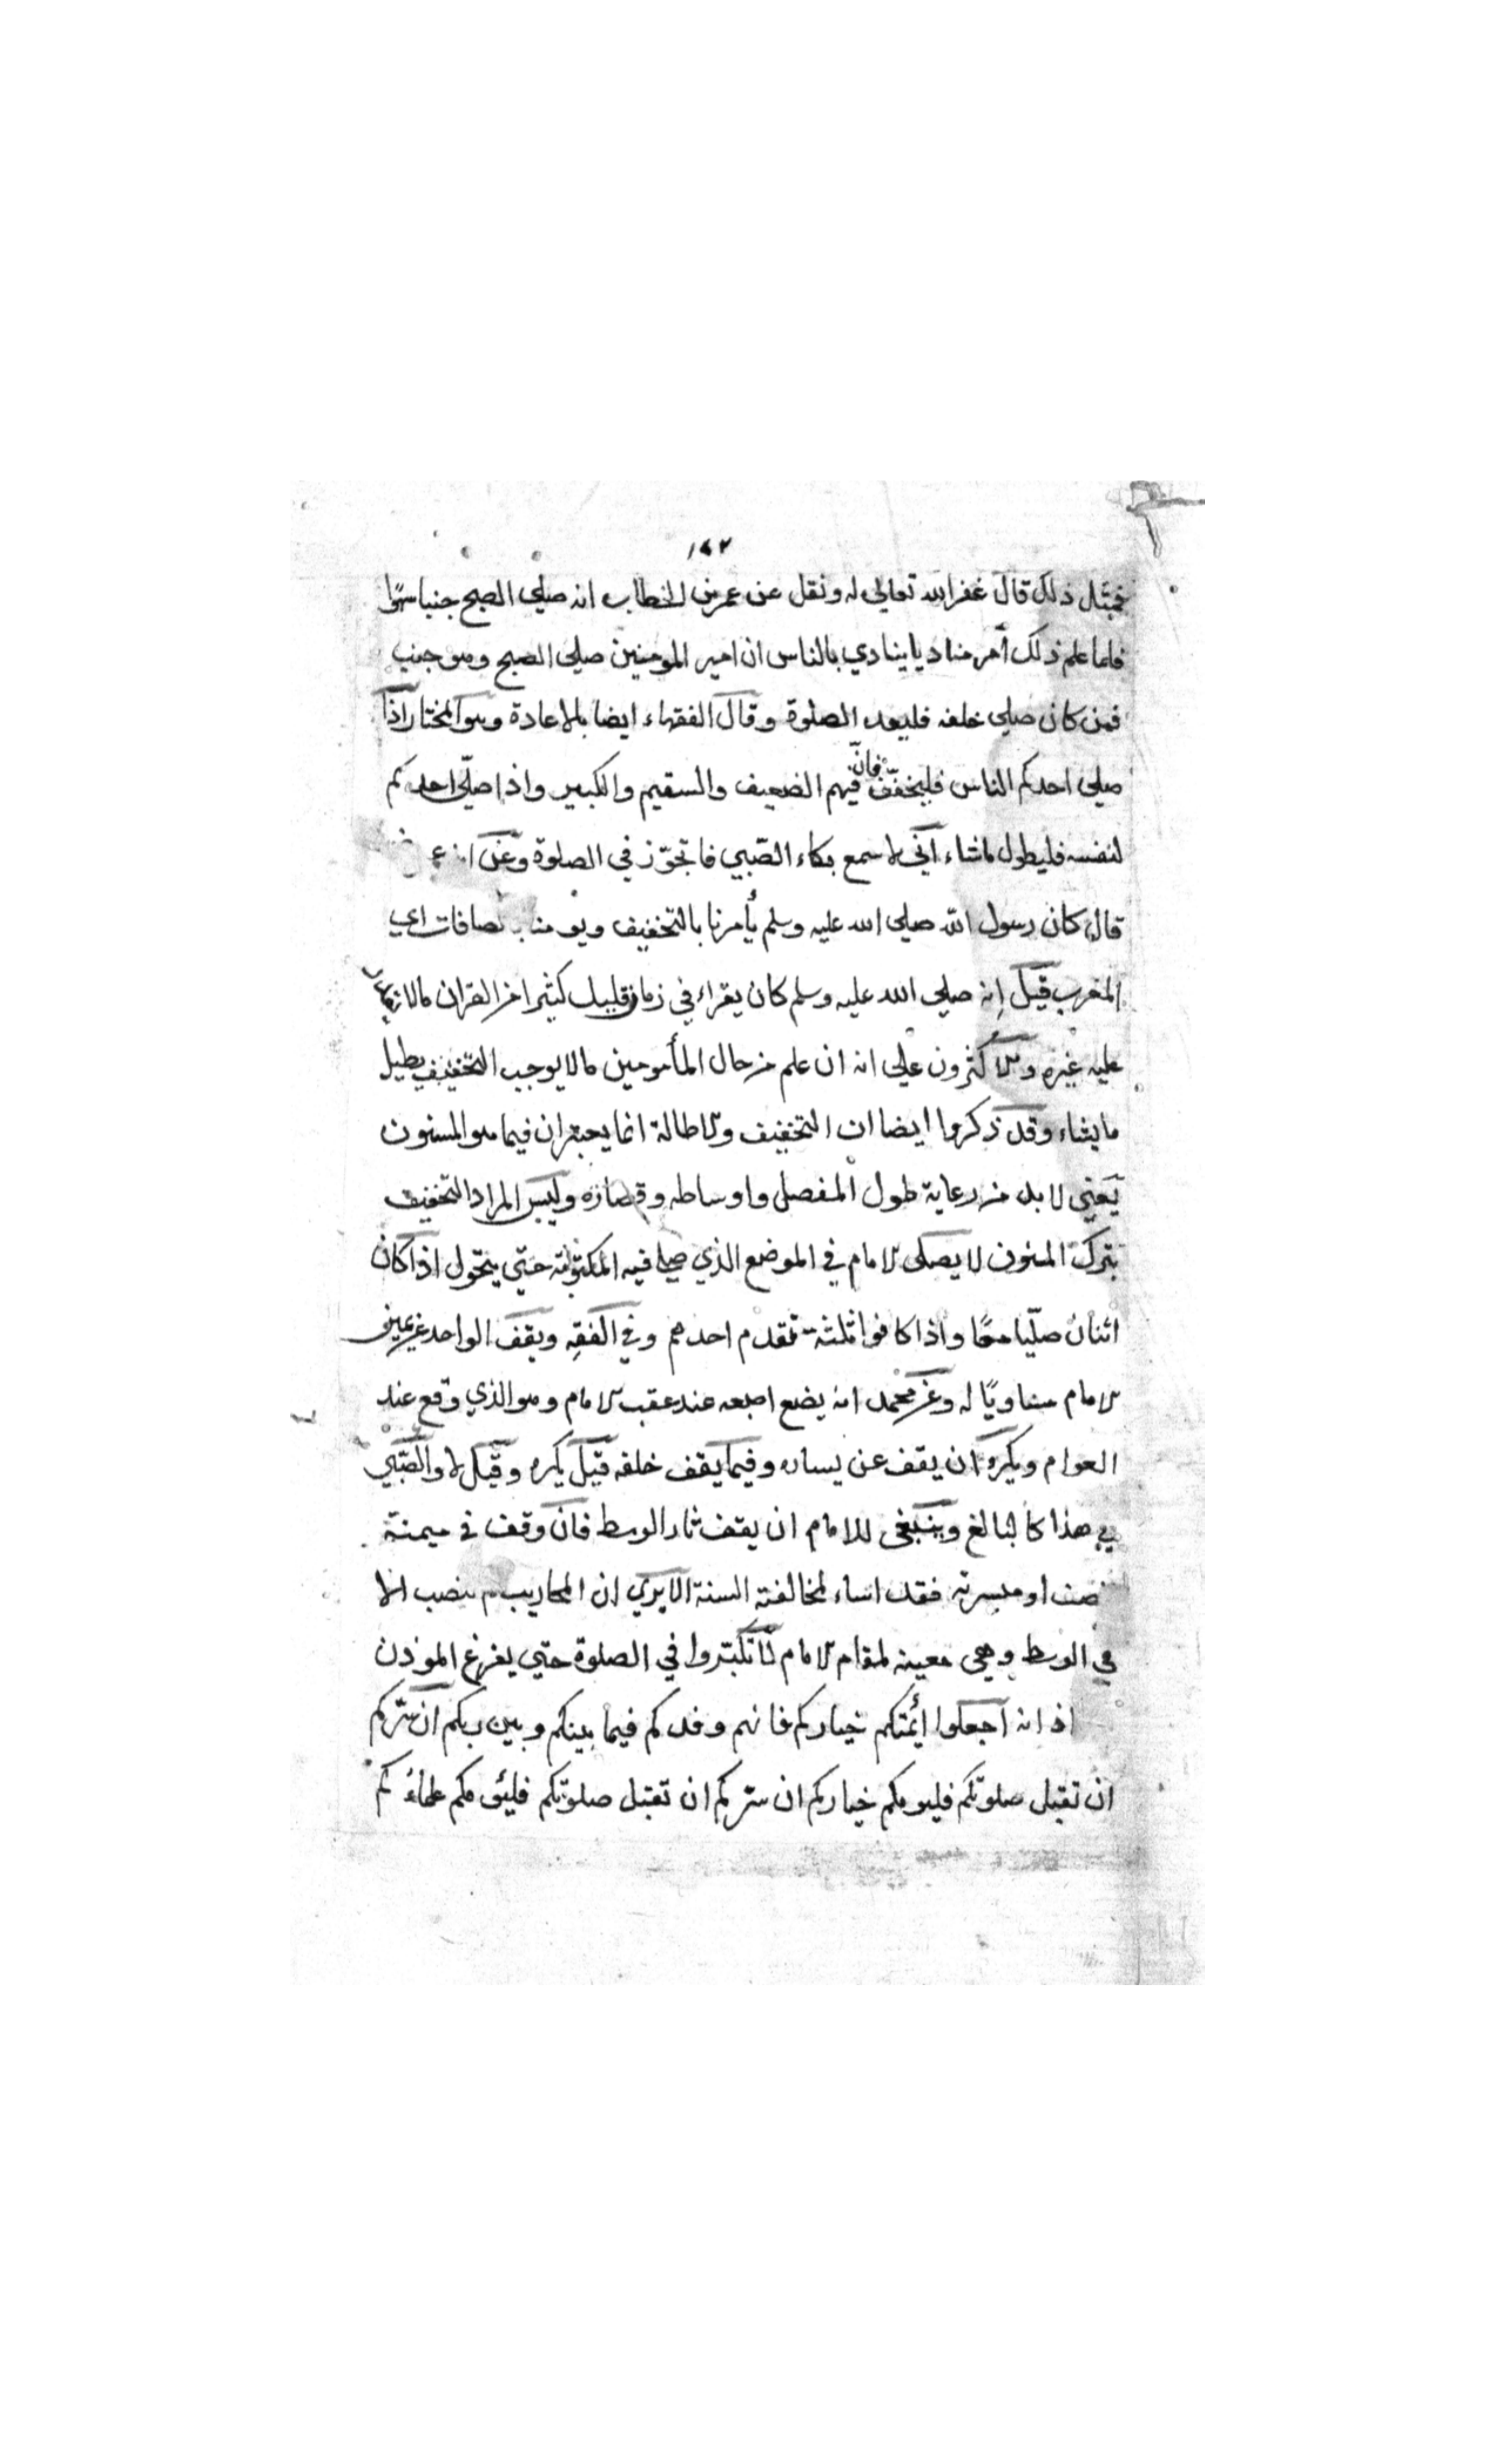 ١٤٢
فمثل ذلك قال غفر الله تعالى له ونقل عن عمر بن الخطاب انه صلى الصبح جنبا سهوا
فلما علم ذلك أمر مناديا ينادي بالناس ان امير المومنين صلى الصبح وهو جنب
فمن كان صلى خلفه فليعد الصلوة وقال الفقهاء ايضا بالاعادة وهو المختار اذا
صلى احدكم الناس فليخفّف فانّ فيهم الضعيف والسقيم والكبير واذا صلّى احدكم
لنفسه فليطول ماشاء انّي لاسمع بكاء الصّبي فاتجوّز في الصلوة وعن
قال كان رسول الله صلى الله عليه وسلم يأمرنا بالتخفيف ويومنا بصافات اي
المغرب قيل إنه صلى الله عليه وسلم كان يقراء في زمان قليل كثيرا من القران مالا
عليه غيره والاكثرون على انه ان علم من حال المأمومين مالا يوجب التخفيف يطيل
مايشاء وقد ذكروا ايضا ان التخفيف والاطالة انما يعتبران فيما هو المسنون
يعني لا بد من رعاية طول المفصل واوساطه وقصاره وليس المراد التخفيف
بترك المسنون لا يصلى الامام في الموضع الذي صلى فيه المكتوبة حتي يتحول اذا كان
اثنان صلّيا معًا واذا كانوا ثلثة تقدم احدهم وفي الفقه ويقف الواحد عن يمين
الامام مساويًا له وعن محمد انه يضع اصبعه عند عقب الامام وهو الذي وقع عند
العوام ويكره ان يقف عن يساره وفيما يقف خلفه قيل يكره وقيل لا والصّبي
في هذا كالبالغ وينبغى للامام ان يقف بازاء الوسط فان وقف في ميمنة
الصف او ميسرته فقد اساء لمخالفته السنة الا يري ان المحاريب لم ينصب الا
في الوسط وهي معينه لمقام الامام لا تكبّروا في الصلوة حتي يفرغ الموذن
اذانه اجعلوا أئمتكم خياركم فانهم وفدكم فيما بينكم وبين ربكم ان سرّكم
ان تقبل صلوتكم فليومكم خياركم ان سرّكم ان تقبل صلوتكم فليؤمكم علماؤكم